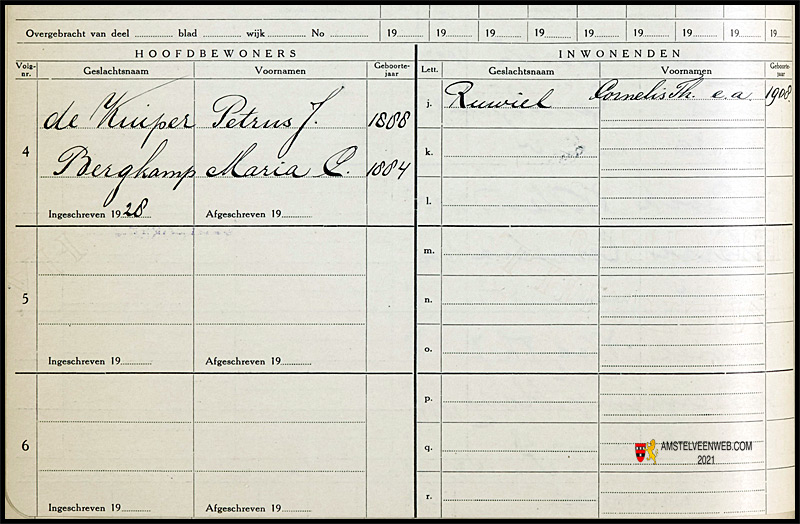 Overgebracht van deel blad wijk No 19 19 19 19 19 19 19 19 19
HOOFDBEWONERS
Volg-nr. Geslachtsnaam Voornamen Geboorte-jaar
4
de Kuiper Petrus J. 1888
Bergkamp Maria C. 1884
Ingeschreven 1928 Afgeschreven 19
5
Ingeschreven 19 Afgeschreven 19
6
Ingeschreven 19 Afgeschreven 19
INWONENDEN
Lett. Geslachtsnaam Voornamen Geboorte-jaar
j. Ruwiel Cornelis Th. e.a. 1908.
k.
l.
m.
n.
o.
p.
q.
r.
AMSTELVEENWEB.COM
2021